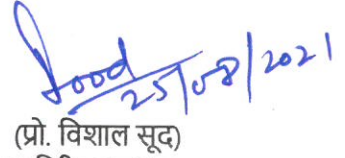 Sood
25/08/2021
(प्रो. विशाल सूद)